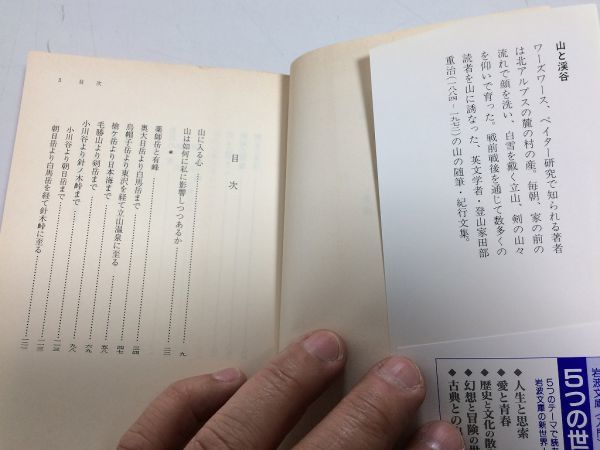 山と渓谷
ワーズワース、ペイター研究で知られる著者
は北アルプスの麓の村の産。毎朝、家の前の
流れで顔を洗い、白雪を戴く立山、剣の山々
を仰いで育った。戦前戦後を通じて数多くの
読者を山に誘なった、英文学者・登山家田部
重治(一八八四-一九七二)の山の随筆・紀行文集。
岩波文庫
5つのテーマで読
岩波文庫の新世界
5つの世
◆人生と思索
◆愛と青春
◆歴史と文化の散
◆幻想と冒険の
◆古典との
目次
山に入る心……九
山は如何に私に影響しつつあるか……
＊
薬師岳と有峰……
奥大日岳より白馬岳まで……三四
烏帽子岳より東沢を経て立山温泉に至る……四七
槍ケ岳より日本海まで……五五
毛勝山より剣岳まで……六九
小川谷より針ノ木峠まで……九八
小川谷より朝日岳まで……
朝日岳より白馬岳を経て針木峠に至る……
3　目次